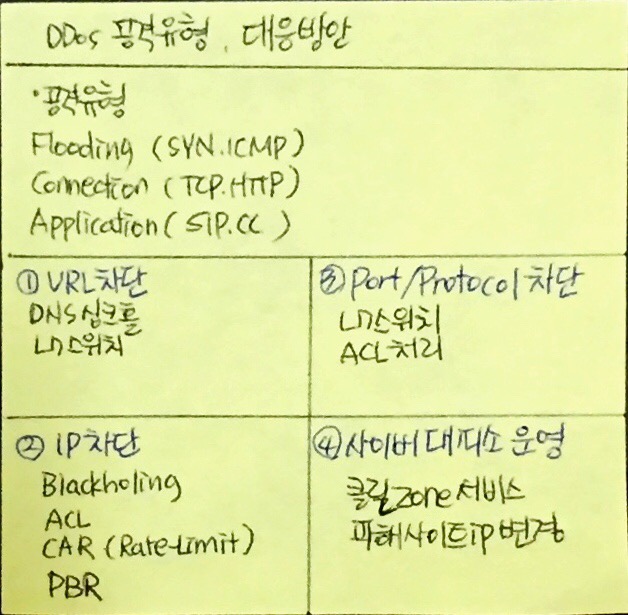 DDos 공격유형, 대응방안
·공격유형
Flooding (SYN.ICMP)
Connection (TCP.HTTP)
Application (SIP.CC)
① URL차단
DNS싱크홀
L7스위치
② IP차단
Blackholing
ACL
CAR (Rate-Limit)
PBR
③ Port/Protocol차단
L7스위치
ACL처리
④ 사이버대피소 운영
클린zone서비스
피해사이트ip변경